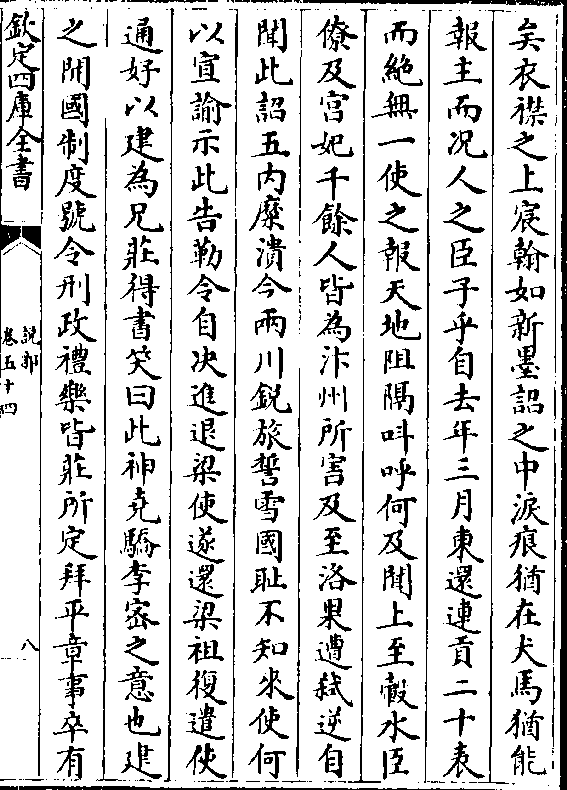 矣衣襟之上宸翰如新墨詔之中淚痕猶在犬馬猶能
報主而况人之臣子乎自去年三月東還連貢二十表
而絶無一使之報天地阻隔呌呼何及聞上至穀水臣
僚及宫妃千餘人皆為汴州所害及至洛果遭弑逆自
聞此詔五内糜潰今兩川鋭旅誓雪國耻不知來使何
以宣諭示此告勒令自决進退梁使遂還梁祖復遣使
通好以建為兄莊得書笑曰此神堯驕李宻之意也建
之開國制度號令刑政禮樂皆莊所定拜平章事卒有
欽定四庫全書
説郛
卷五十四
八